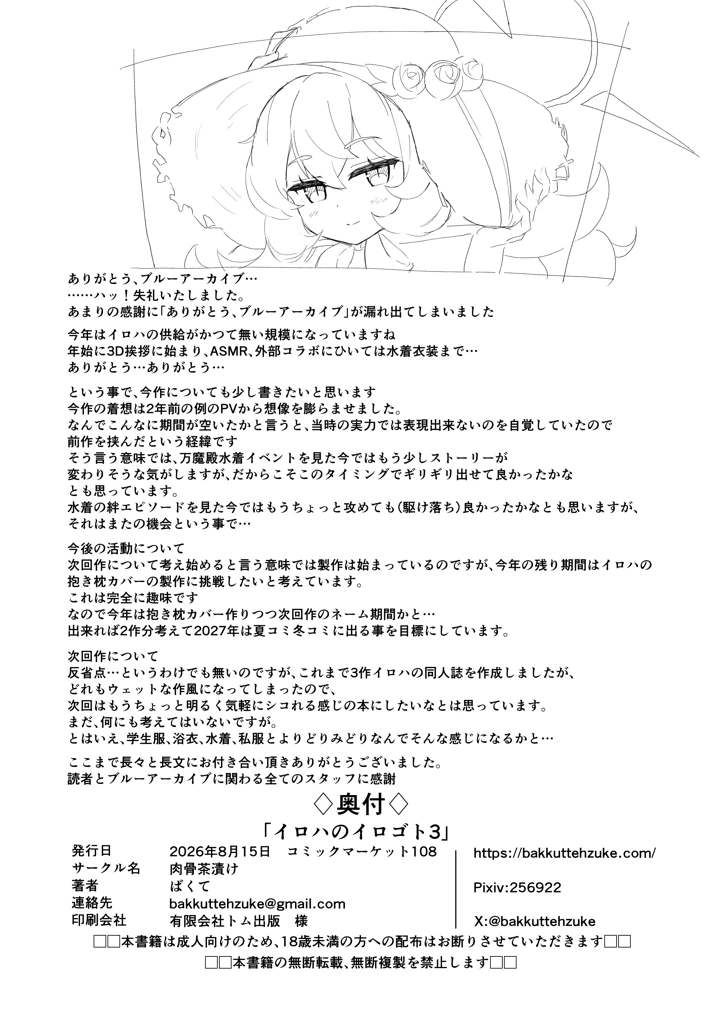 ありがとう、ブルーアーカイブ…
……ハッ！失礼いたしました。
あまりの感謝に「ありがとう、ブルーアーカイブ」が漏れ出てしまいました
今年はイロハの供給がかつて無い規模になっていますね
年始に3D挨拶に始まり、ASMR、外部コラボにひいては水着衣装まで…
ありがとう…ありがとう…
という事で、今作についても少し書きたいと思います
今作の着想は2年前の例のPVから想像を膨らませました。
なんでこんなに期間が空いたかと言うと、当時の実力では表現出来ないのを自覚していたので
前作を挟んだという経緯です
そう言う意味では、万魔殿水着イベントを見た今ではもう少しストーリーが
変わりそうな気がしますが、だからこそこのタイミングでギリギリ出せて良かったかな
とも思っています。
水着の絆エピソードを見た今ではもうちょっと攻めても（駆け落ち）良かったかなとも思いますが、
それはまたの機会という事で…
今後の活動について
次回作について考え始めると言う意味では製作は始まっているのですが、今年の残り期間はイロハの
抱き枕カバーの製作に挑戦したいと考えています。
これは完全に趣味です
なので今年は抱き枕カバー作りつつ次回作のネーム期間かと…
出来れば2作分考えて2027年は夏コミ冬コミに出る事を目標にしています。
次回作について
反省点…というわけでも無いのですが、これまで3作イロハの同人誌を作成しましたが、
どれもウェットな作風になってしまったので、
次回はもうちょっと明るく気軽にシコれる感じの本にしたいなとは思っています。
まだ、何にも考えてはいないですが。
とはいえ、学生服、浴衣、水着、私服とよりどりみどりなんでそんな感じになるかと…
ここまで長々と長文にお付き合い頂きありがとうございました。
読者とブルーアーカイブに関わる全てのスタッフに感謝
◇奥付◇
「イロハのイロゴト3」
発行日 2026年8月15日 コミックマーケット108
サークル名 肉骨茶漬け
著者 ばくて
連絡先 bakkuttehzuke@gmail.com
印刷会社 有限会社トム出版 様
https://bakkuttehzuke.com/
Pixiv:256922
X:@bakkuttehzuke
□□本書籍は成人向けのため、18歳未満の方への配布はお断りさせていただきます□□
□□本書籍の無断転載、無断複製を禁止します□□